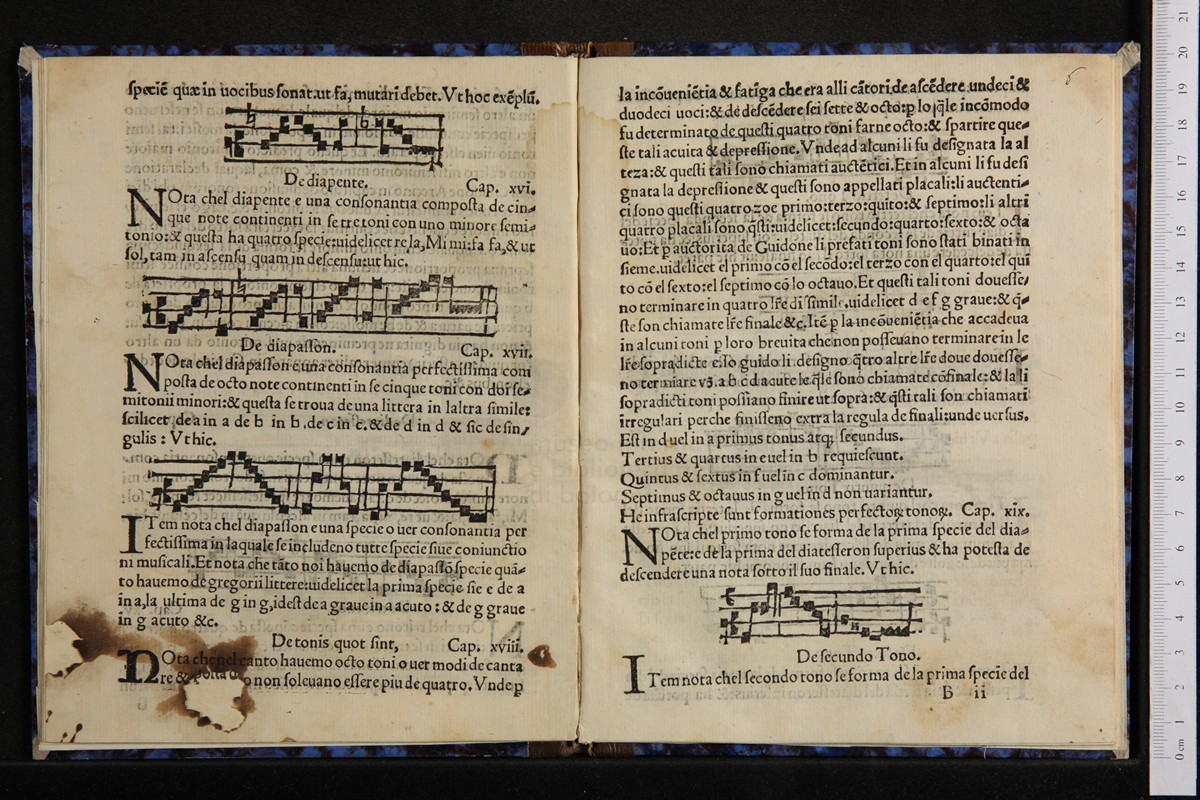 speciē quæ in uocibus sonat: ut fa, mutari debet. Vt hoc exēplū.
De diapente. Cap. xvi.
NOta chel diapente e una consonantia composta de cin-
que note continenti in se tre toni con uno minore semi-
tonio: & questa ha quatro specie: uidelicet re la, Mi mi: fa fa, & ut
sol, tam in ascensu quam in descensu: ut hic.
De diapasson. Cap. xvii.
NOta chel diapasson e una consonantia perfectissima com
posta de octo note continenti in se cinque toni con doi se-
mitonii minori: & questa se troua de una littera in laltra simile:
scilicet de a in a de b in b. de c in c. & de d in d & sic de sin,
gulis: Vt hic.
ITem nota chel diapasson e una specie o uer consonantia per
fectissima in laquale se includeno tutte specie siue coniunctio
ni musicali. Et nota che tāto noi hauemo de diapassō specie quā-
to hauemo de gregorii littere: uidelicet la prima specie sie e de a
in a, la ultima de g in g, idest de a graue in a acuto: & de g graue
in g acuto &c.
De tonis quot sint, Cap. xviii.
NOta che nel canto hauemo octo toni o uer modi de canta
re & non soleuano essere piu de quatro. Vnde p
la incōueniētia & fatiga che era alli cātori de ascēdere undeci &
duodeci uoci: & de descēdere sei sette & octo: p lo q̄le incōmodo
fu determinato de questi quatro toni farne octo: & spartire que-
ste tali acuita & depressione. Vnde ad alcuni li fu designata la al
teza: & questi tali sono chiamati auctētici. Et in alcuni li fu desi
gnata la depressione & questi sono appellati placali: li auctenti-
ci sono questi quatro zoe primo: terzo: quīto: & septimo: li altri
quatro placali sono q̄sti: uidelicet: secundo: quarto: sexto: & octa
uo: Et p auctorita de Guidone li prefati toni sono stati binati in
sieme. uidelicet el primo cō el secōdo: el terzo con el quarto: el quī
to cō el sexto: el septimo cō lo octauo. Et questi tali toni douesse,
no terminare in quatro lr̄e dissimile. uidelicet d e f g graue: & q̄-
ste son chiamate lr̄e finale &c. Itē p la incōueniētia che accadeua
in alcuni toni p loro breuita che non posseuano terminare in le
lr̄e sopradicte esso guido li designo q̄tro altre lr̄e doue douesse-
no termiare vȝ. a b c d acute le q̄le sono chiamate cōfinale: & la li
sopradicti toni possiano finire ut sopra: & q̄sti tali son chiamati
irregulari perche finisseno extra la regula de finali: unde uersus.
Est in d uel in a primus tonus atq; secundus.
Tertius & quartus in e uel in b requiescunt.
Quintus & sextus in f uel in c dominantur.
Septimus & octauus in g uel in d non uariantur.
He infrascripte sunt formationes perfectoꝝ tonoꝝ. Cap. xix.
NOta chel primo tono se forma de la prima specie del dia-
pēte: e de la prima del diatesseron superius & ha potesta de
descendere una nota sotto il suo finale. Vt hic.
De secundo Tono.
ITem nota chel secondo tono se forma de la prima specie del
B ii